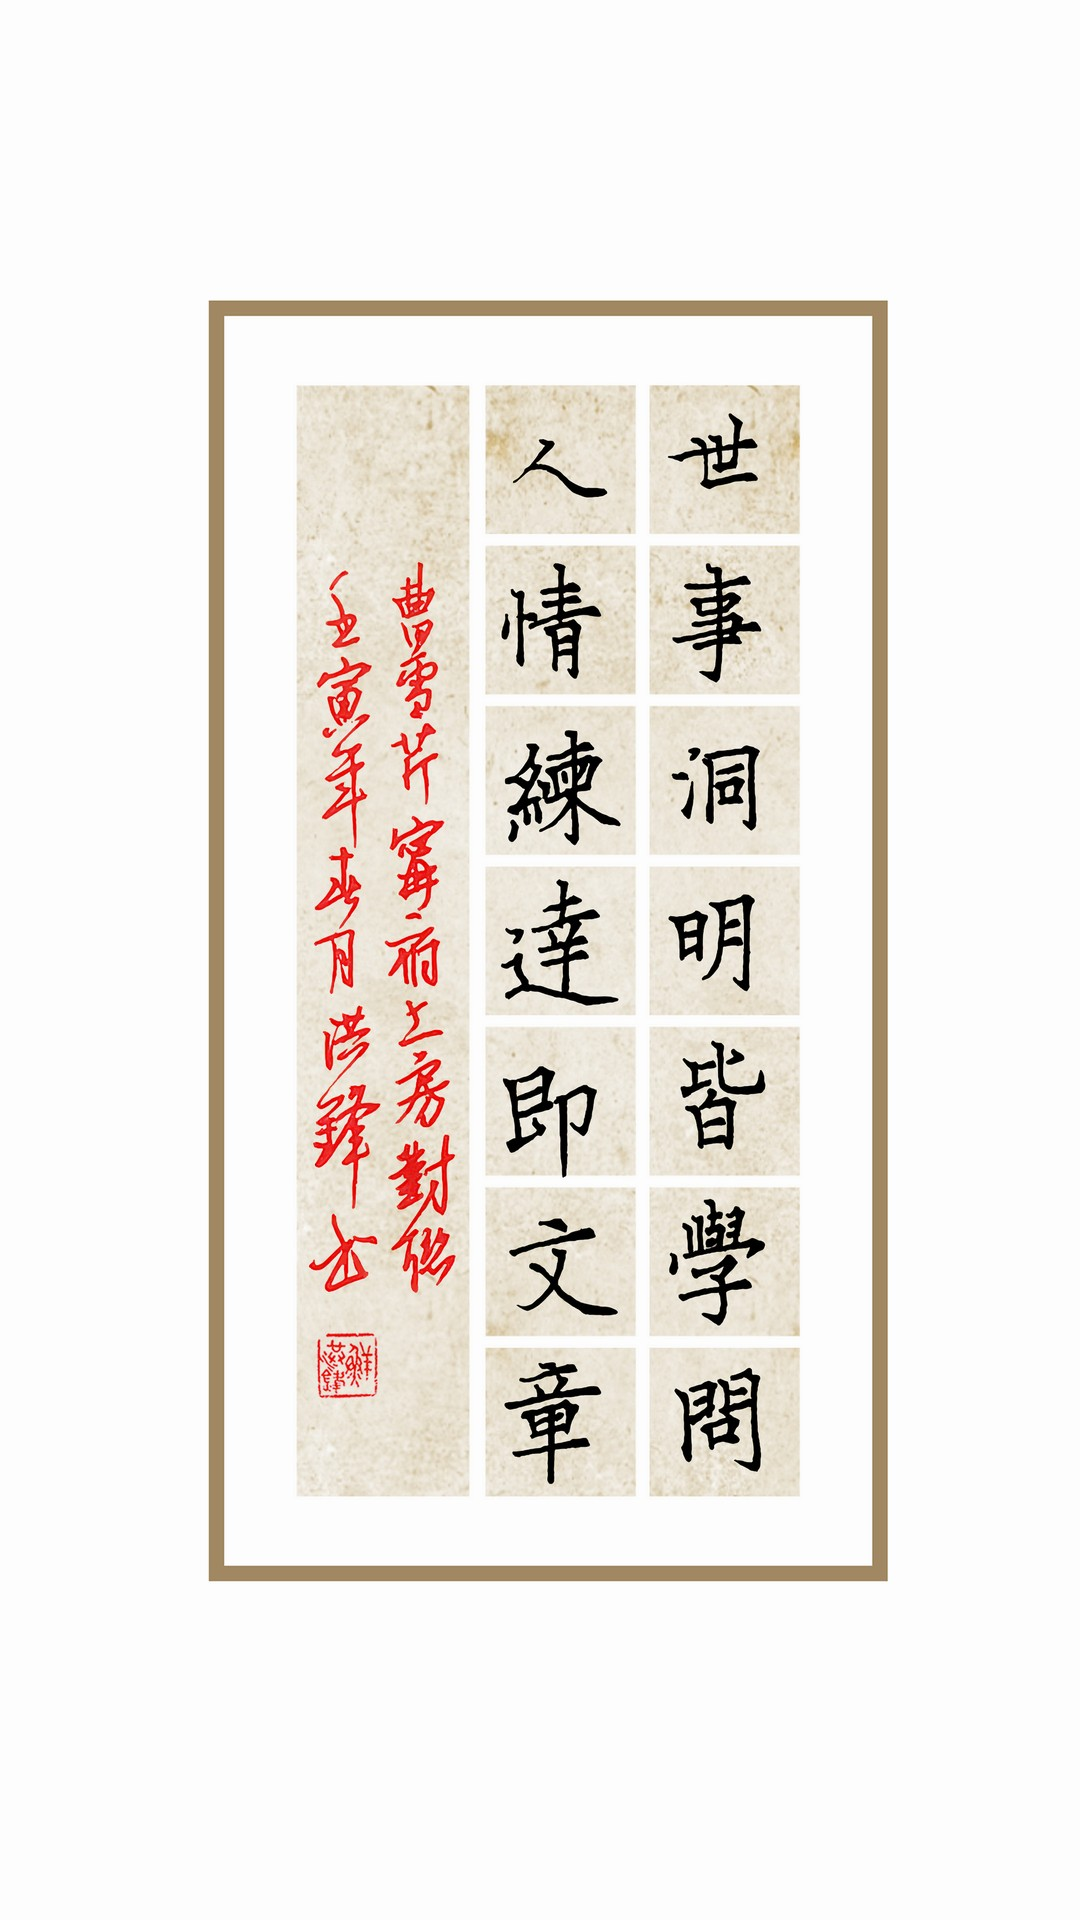 世事洞明皆學問
人情練達即文章
曹雪芹寧府上房對聯
壬寅年春月洪鋒书